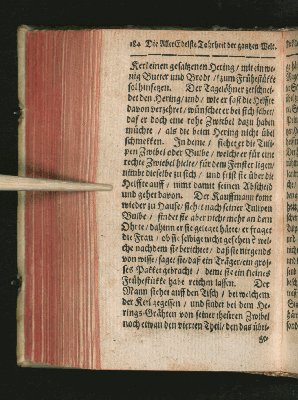 184 Die Aller Edelste Tohrheit der gantzen Welt.
Kerl einen gesaltzenen Hering / mit ein we-
nig Butter und Brodt / zum Frühestükke
sol hinsetzen. Der Tagelöhner zerschnei-
det den Hering / und / wie er fast die Helffte
davon verzehret / wünschet er bei sich selbst /
daß er doch eine rohe Zwibel dazu haben
müchte / als die beim Hering nicht übel
schmekken. In deme / siehet er die Tuli-
pen Zwibel oder Bulbe / welche er für eine
rechte Zwiebel hielte / für dem Fenster ligen /
nimbt dieselbe zu sich / und frist sie über die
Helffte auff / nimt damit seinen Abscheid
und gehet davon. Der Kauffmann komt
wieder zu Hause / sieht nach seiner Tulipen
Bulbe / findet sie aber nicht mehr an dem
Ohrte / dahinn er sie geleget hatte / er fraget
die Frau / ob sie selbige nicht gesehen? wel-
che nachdem sie berichtet / daß sie nirgends
von wisse / sagt sie / daß ein Träger / ein gros-
ses Pakket gebracht / deme sie ein kleines
Frühestükke habe reichen lassen. Der
Mann siehet auff den Tisch / bei welchem
der Kerl gegessen / und findet bei dem He-
rings-Grähten von seiner theuren Zwibel
noch etwan den vierten Theil / den das übri-
ge